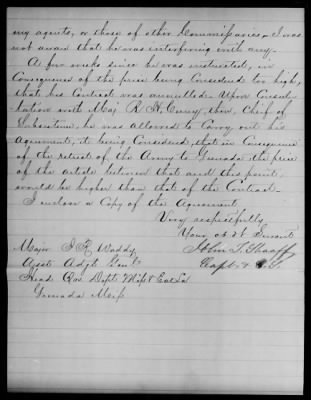 my agents, or those of other Commissaries, I was
not aware that he was interfering with any.
A few weeks since he was instructed, in
Consequence of the price being Considered too high,
that his Contract was annulled. Upon Consul-
tation with Maj R. H. then, Chief of
Subsistence, he was allowed to Carry out his
agreement, it being Considered, that in Consequence
of the retreat of the Army to Grenada, the price
of the article between that and this point,
would be higher than that of the Contract.
I enclose a Copy of the Agreement
Very respectfully
Your ob St Servant
John T.
Capt &
Major J. R. Waddy
Asst Adjt Genl
Head Qrs Dept Miss & East La
Grenada Miss